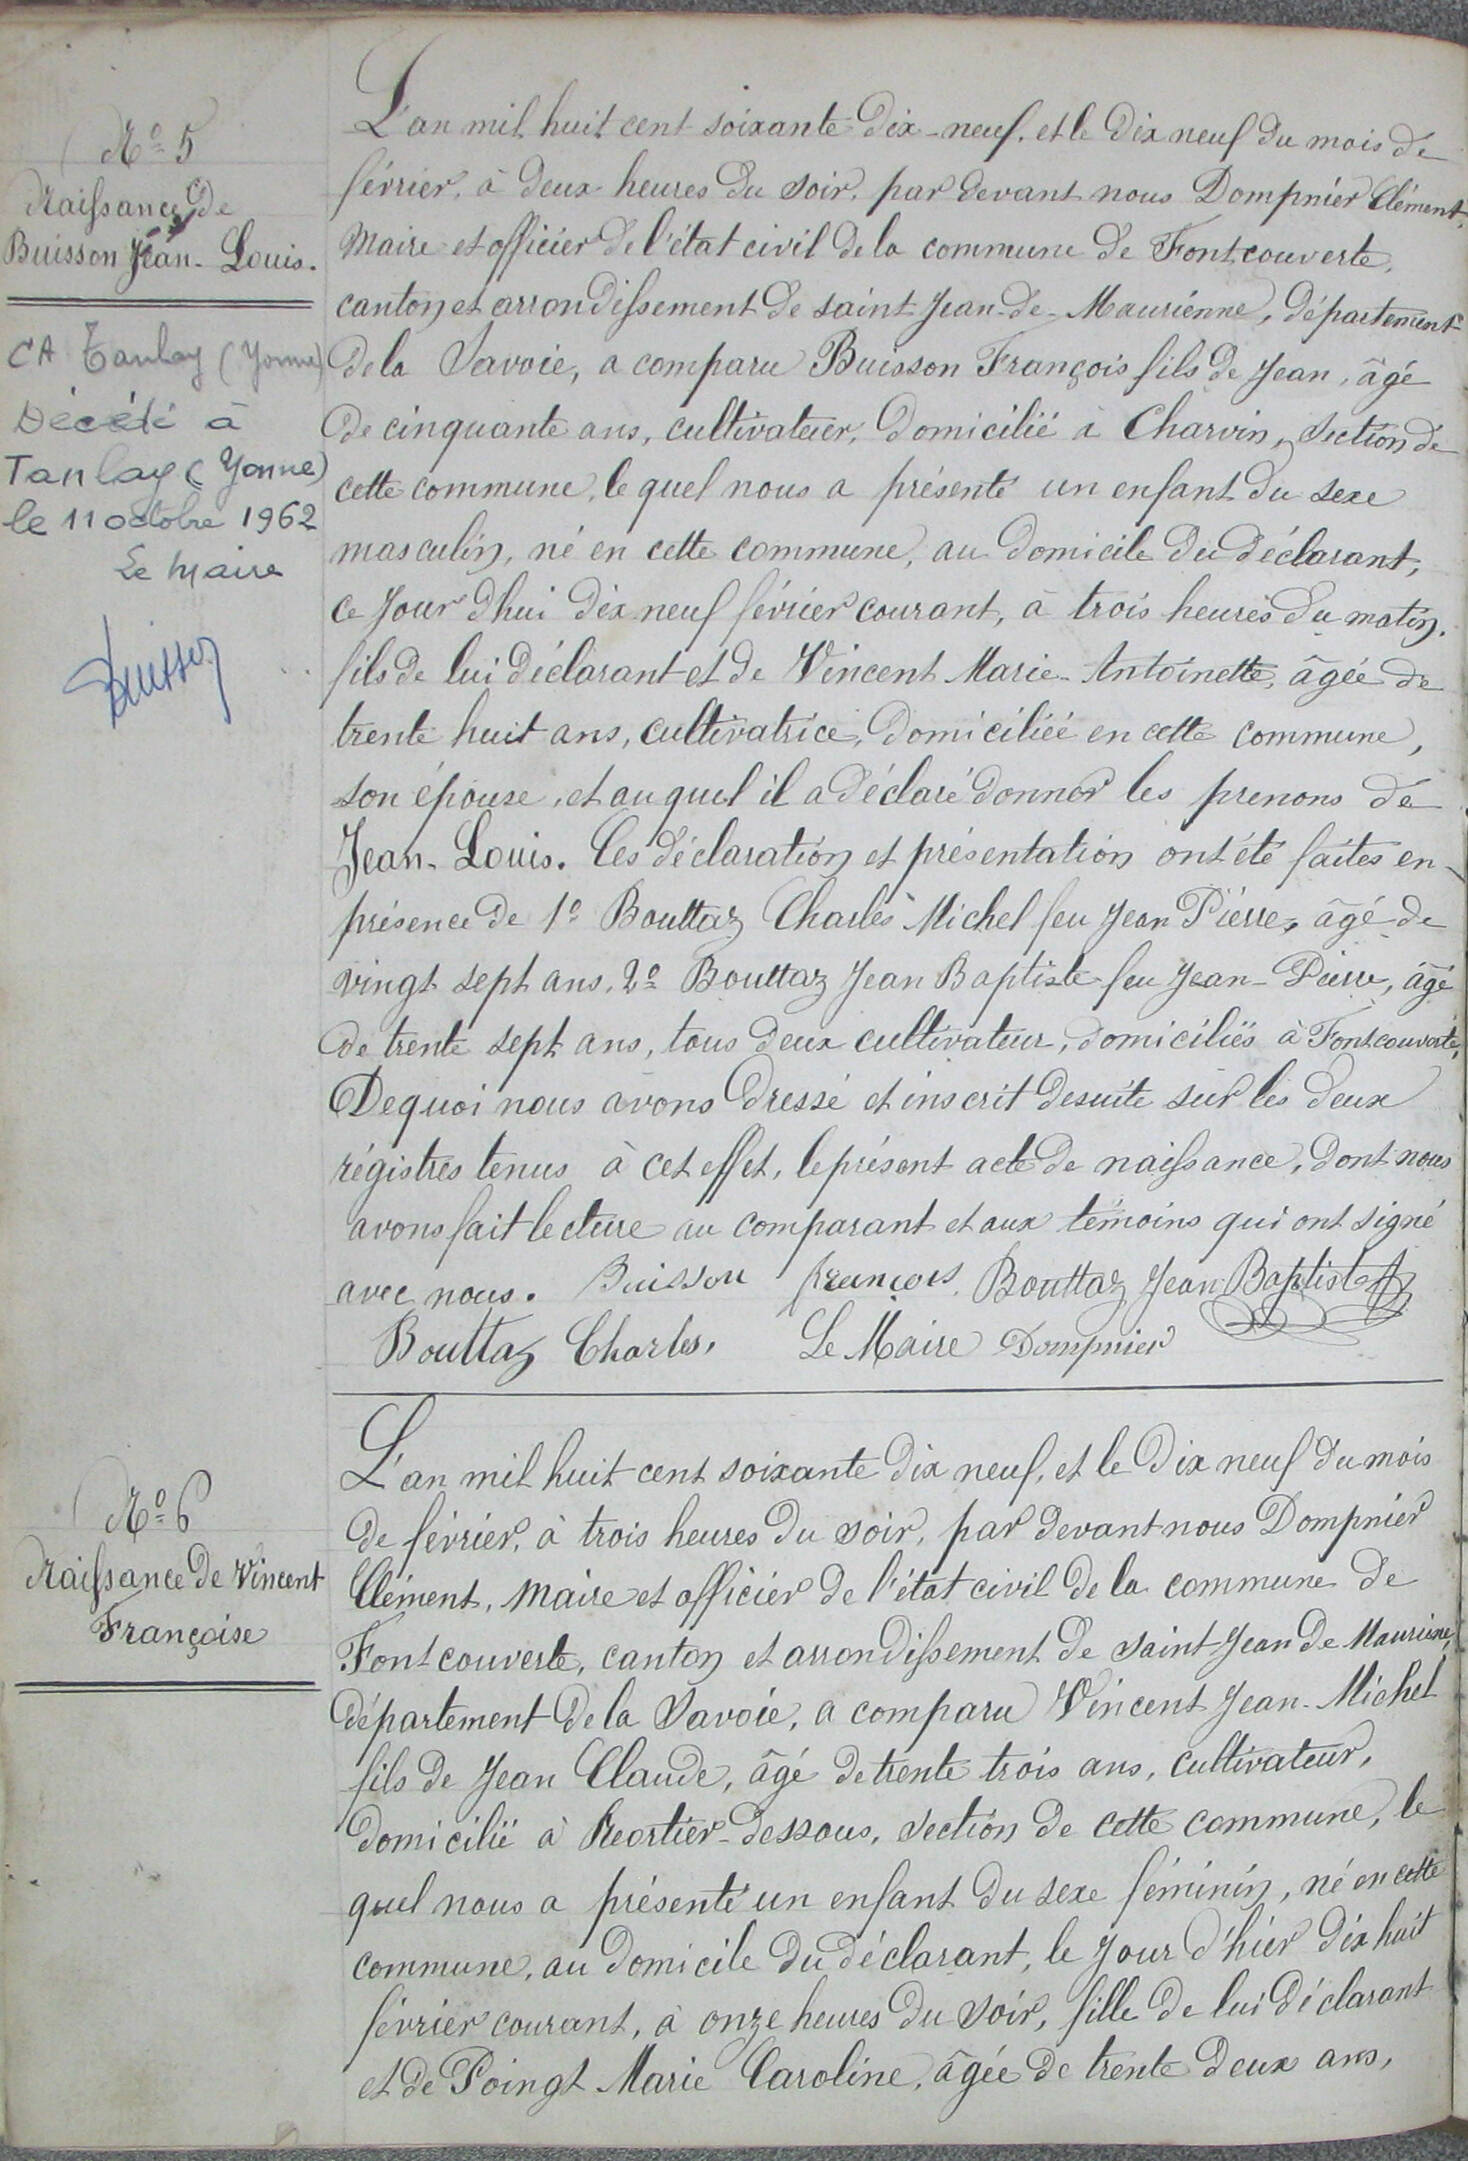 N° 5
Naissance de
Buisson Jean-Louis.
CA Tanlay (Yonne)
Décédé à
Tanlay (Yonne)
le 11 octobre 1962
Le Maire
Buisson
L'an mil huit cent soixante dix-neuf, et le dix neuf du mois de
février, à deux heures du soir, par devant nous Dompnier Clément,
Maire et officier de l'état civil de la commune de Fontcouverte,
canton et arrondissement de saint Jean-de-Maurienne, département
de la Savoie, a comparu Buisson François fils de Jean, âgé
de cinquante ans, cultivateur, domicilié à Charvin, section de
cette commune, le quel nous a présenté un enfant du sexe
masculin, né en cette commune, au domicile du déclarant,
ce jour d'hui dix neuf février courant, à trois heures du matin.
fils de lui déclarant et de Vincent Marie-Antoinette, âgée de
trente huit ans, cultivatrice, domiciliée en cette commune,
son épouse, et au quel il a déclaré donner les prenons de
Jean-Louis. Ces déclaration et présentation ont été faites en
présence de 1° Bouttaz Charles Michel feu Jean Pierre, âgé de
vingt sept ans, 2° Bouttaz Jean Baptiste feu Jean-Pierre, âgé
de trente sept ans, tous deux cultivateur, domiciliés à Fontcouverte,
De quoi nous avons dressé et inscrit desuite sur les deux
régistres tenus à cet effet, le présent acte de naissance, dont nous
avons fait lecture au comparant et aux témoins qui ont signé
avec nous. Buisson françois. Bouttaz Jean Baptiste
Bouttaz Charles, Le Maire Dompnier
N° 6
Naissance de Vincent
Françoise
L'an mil huit cent soixante dix neuf, et le dix neuf du mois
de février, à trois heures du soir, par devant nous Dompnier
Clément, Maire et officier de l'état civil de la commune de
Fontcouverte, canton et arrondissement de saint Jean de Maurienne,
département de la Savoie, a comparu Vincent Jean-Michel
fils de Jean Claude, âgé de trente trois ans, cultivateur,
domicilié à Reortier-dessous, section de cette commune, le
quel nous a présenté un enfant du sexe féminin, né en cette
commune, au domicile du déclarant, le jour d'hier dix huit
février courant, à onze heures du soir, fille de lui déclarant
et de Poingt Marie Caroline, âgée de trente deux ans,